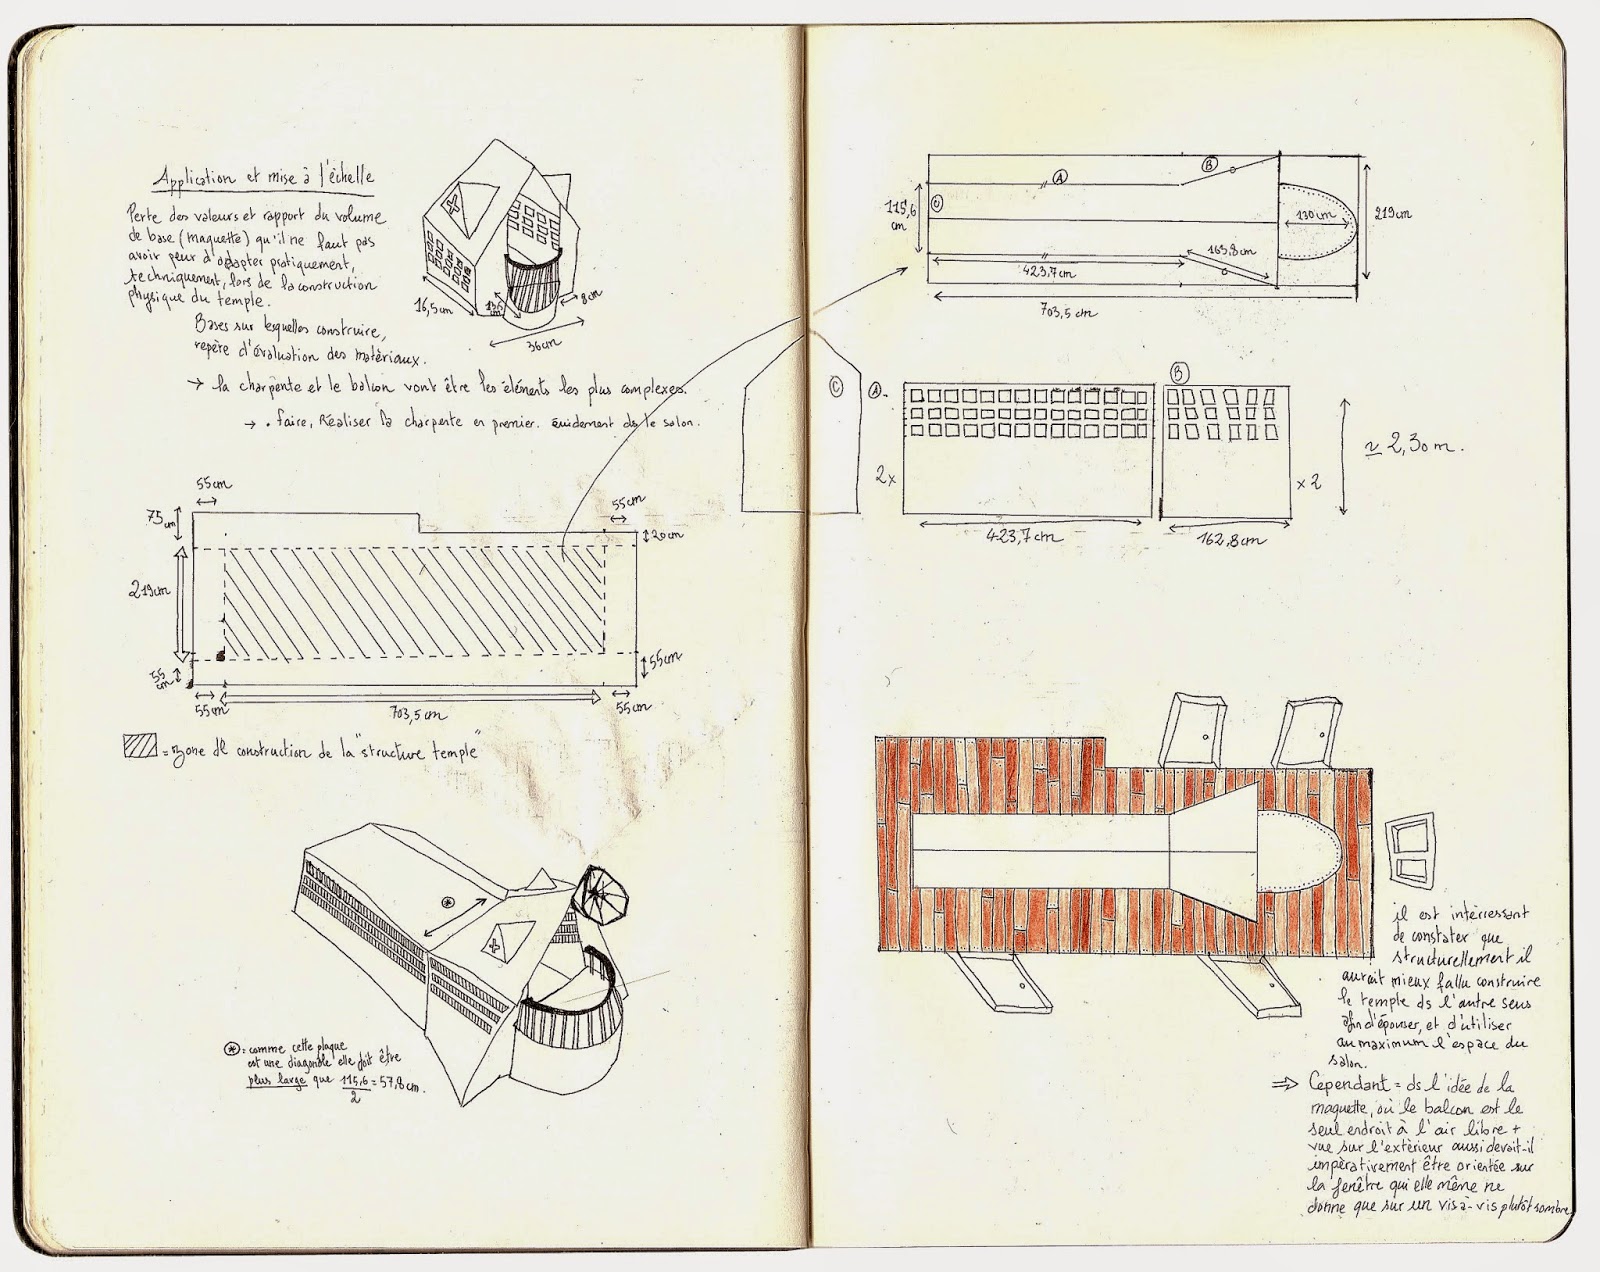 Application et mise à l'échelle
Perte des valeurs et rapport du volume
de base (maquette) qu'il ne faut pas
avoir peur d'adapter pratiquement,
techniquement, lors de la construction
physique du temple.
Bases sur lesquelles construire,
repère d'évaluation des matériaux.
→ la charpente et le balcon vont être les éléments les plus complexes.
→ . faire, Réaliser la charpente en premier. évidement ds le salon.
16,5cm
13,5
cm
8cm
36cm
55cm
75cm
55cm
20cm
219cm
55
cm
55cm
55cm
703,5cm
55cm
= zone de construction de la "structure temple"
*
* = comme cette plaque
est une diagonale elle doit être
plus large que 115,6/2 = 57,8cm.
A
B
C
115,6
cm
130cm
219cm
163,8cm
423,7cm
703,5cm
C
A
B
2x
x2
≃ 2,30m.
423,7cm
162,8cm
il est intérressant
de constater que
structurellement il
aurait mieux fallu construire
le temple ds l'autre sens
afin d'épouser, et d'utiliser
au maximum l'espace du
salon.
⇒ Cependant = ds l'idée de la
maquette, où le balcon est le
seul endroit à l'air libre +
vue sur l'extèrieur aussi devait-il
impèrativement être orientée sur
la fenêtre qui elle même ne
donne que sur un vis à-vis plutôt sombre